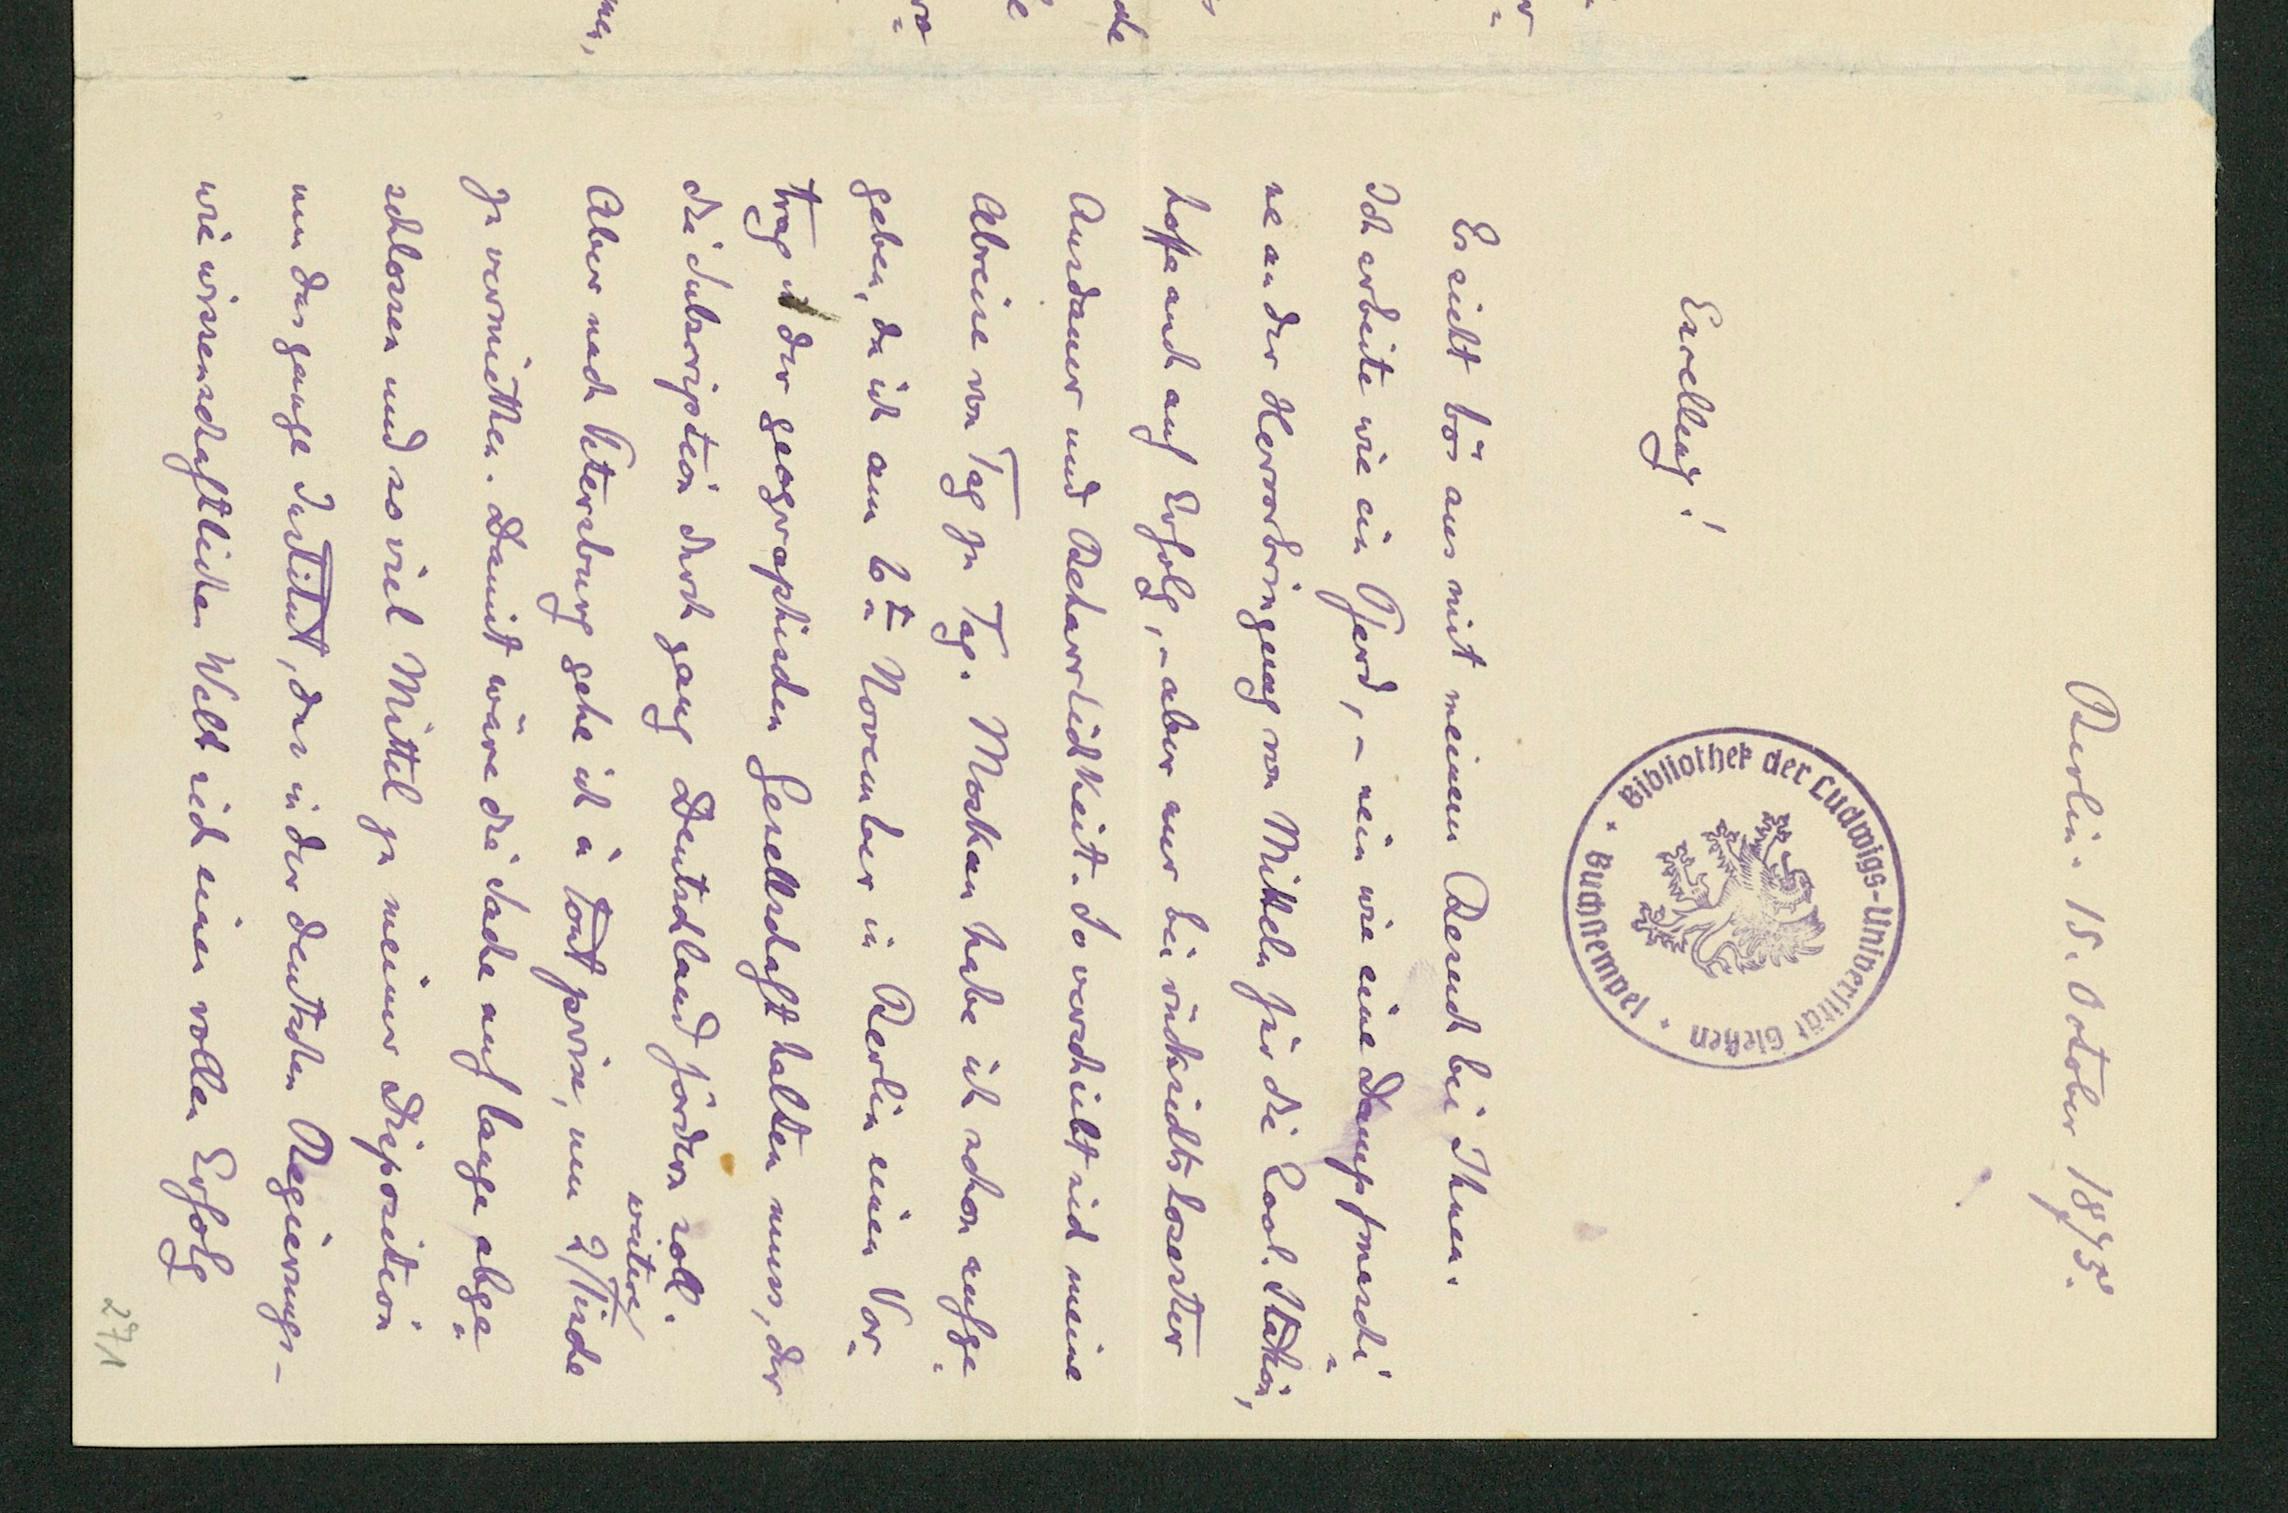 Berlin. 18. October 1873.
Bibliothek der Ludwigs-Universität Gießen
Buchstempel
Excellenz!
Es sieht bös aus mit meinem Besuch bei Ihnen.
Ich arbeite wie ein Pferd, - nein wie eine Dampfmaschi-
ne an der Hervorbringung von Mitteln für die Zool. Station,
hoffe auch auf Erfolg, - aber nur bei rücksichtslosester
Ausdauer und Beharrlichkeit. So verschiebt sich meine
Abreise von Tag zu Tag. Moskau habe ich schon aufge-
geben, da ich am November in Berlin einen Vor-
trag in der geographischen Gesellschaft halten muss, der
die Subscription durch ganz Deutschland fördern soll.
Aber nach Petersburg gehe ich à tout prise, um 2 weitere Tische
zu vermiethen. Damit wäre die Sache auf lange abge-
schlossen und so viel Mittel zu meiner Disposition
um das ganze Institut, das in der deutschen Regierungs-
wie wissenschaftlichen Welt sich einen vollen Erfolg
271